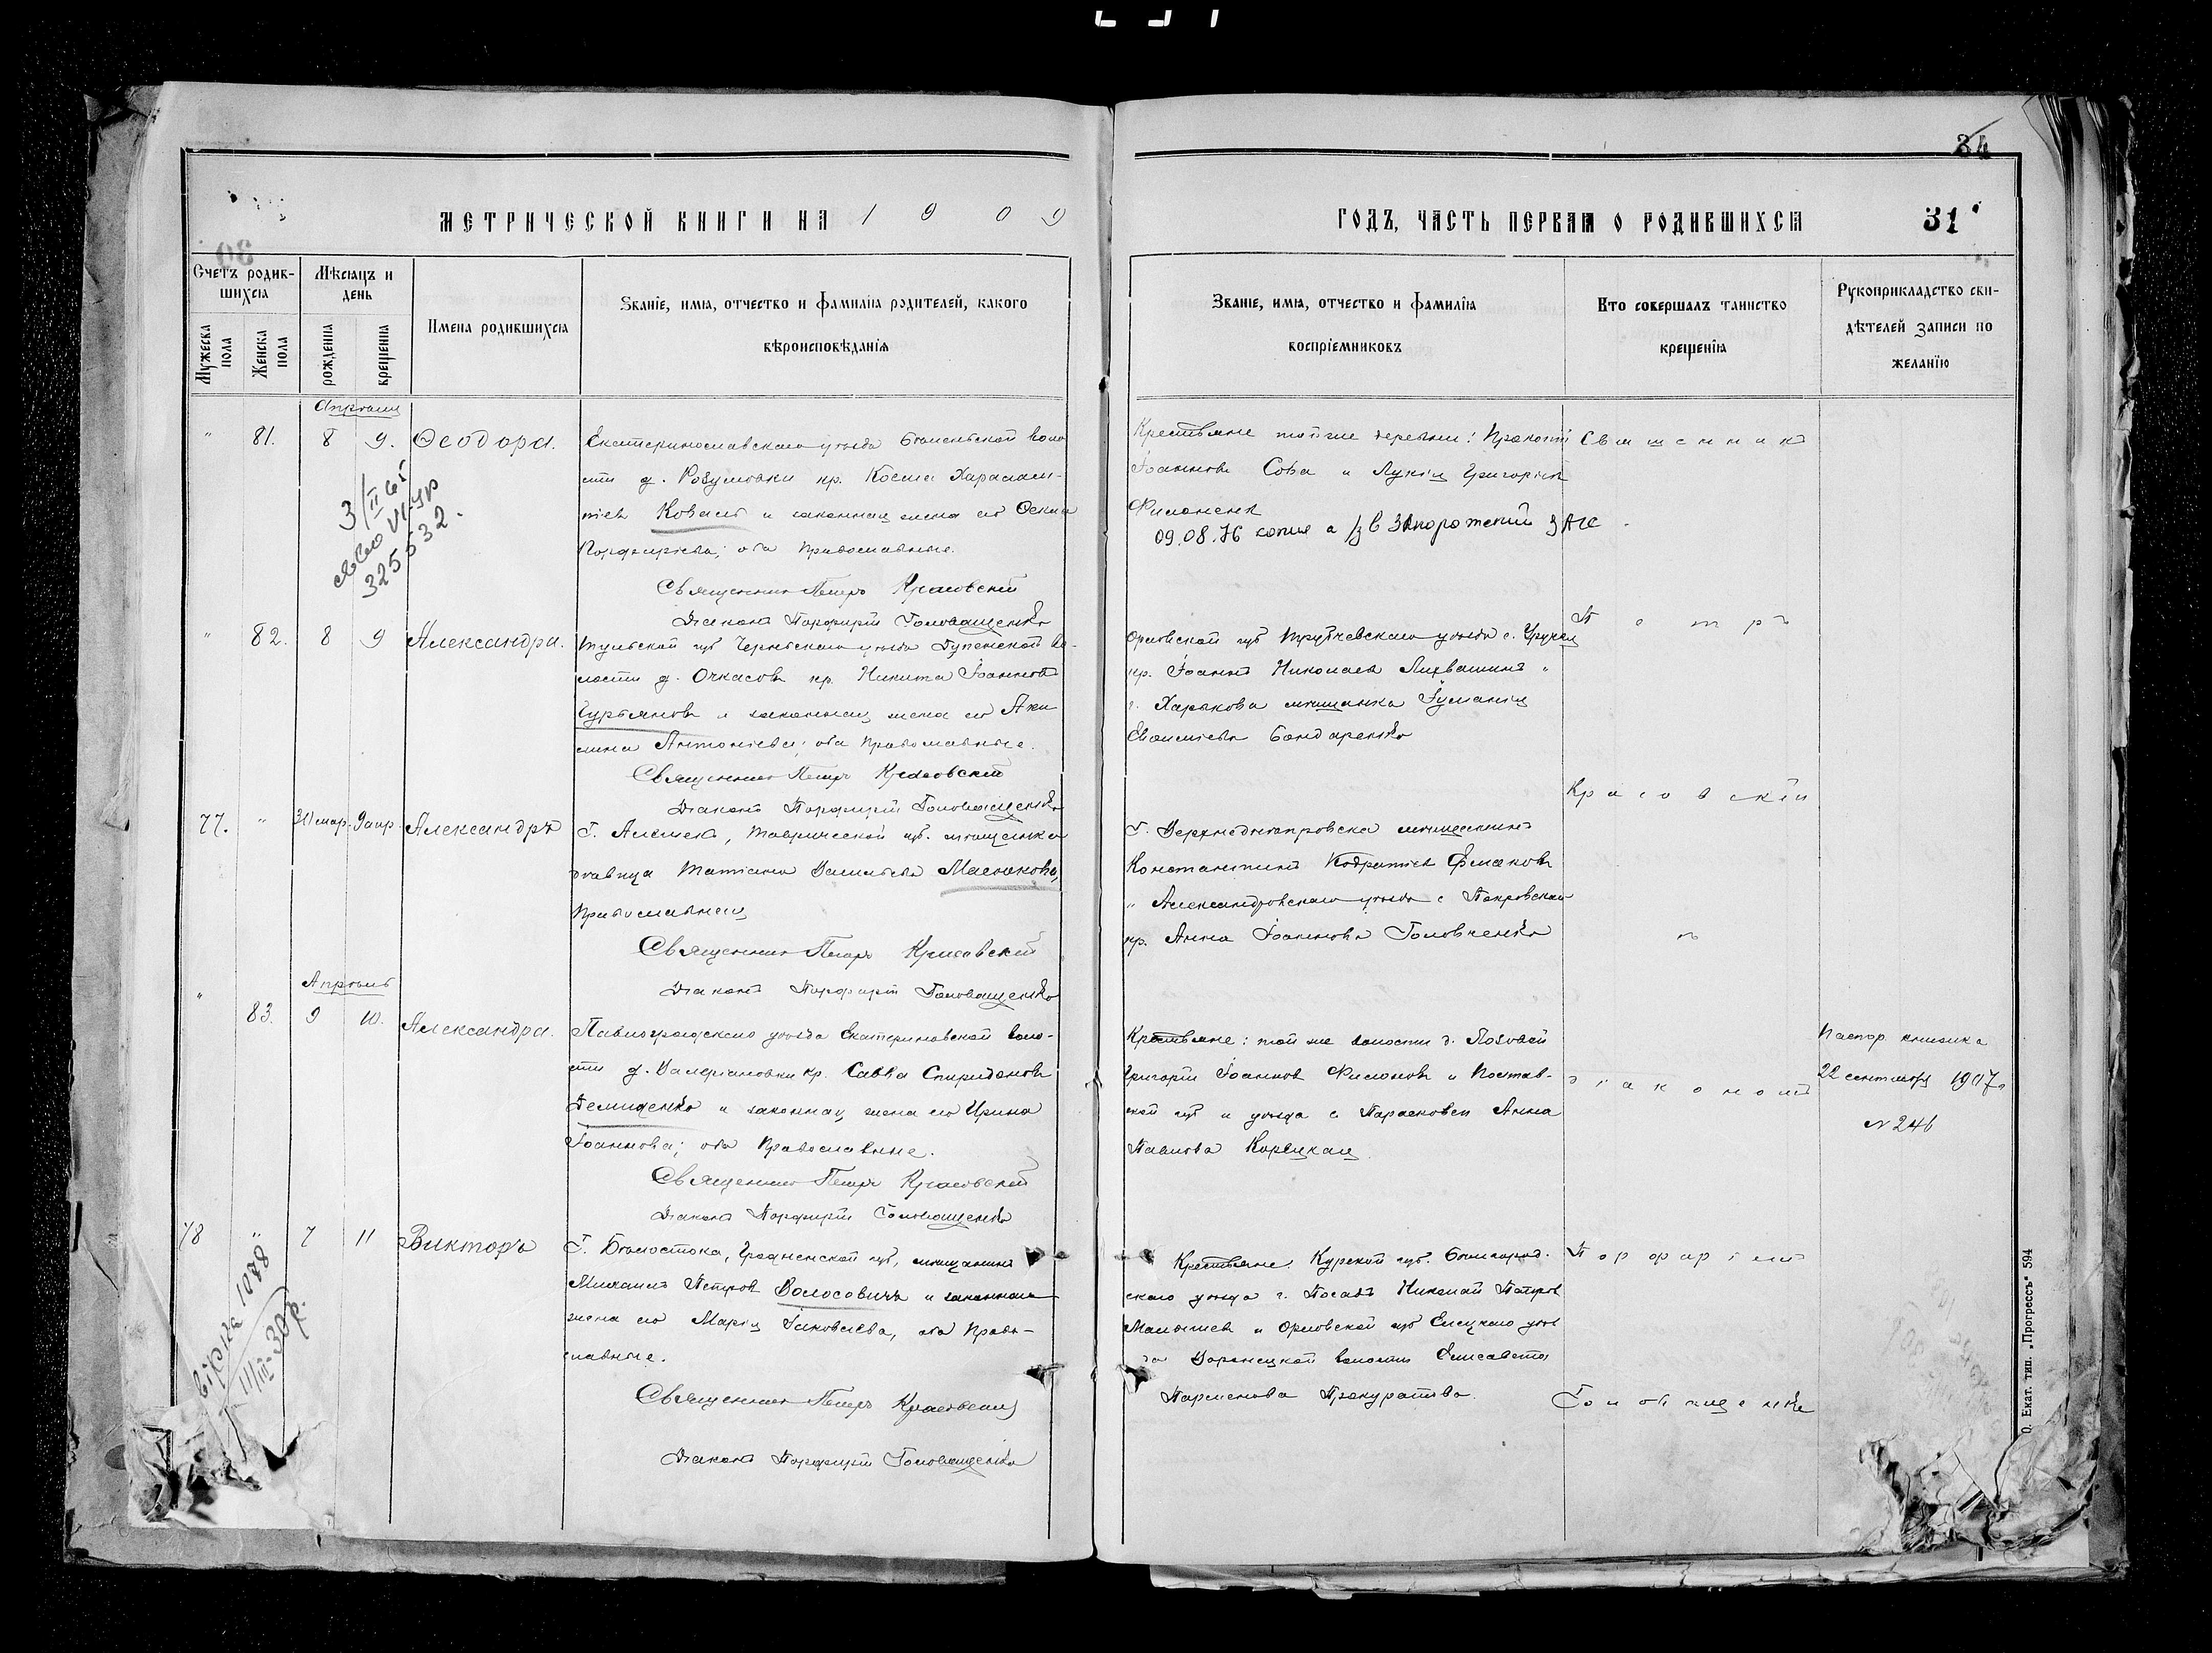 84
МЕТРИЧЕСКОЙ КНИГИ НА 1909
ГОДЪ, ЧАСТЬ ПЕРВАЯ О РОДИВШИХСЯ
31
Счетъ родив-
шихся
Мѣсяцъ и
день
Имена родившихся
Званіе, имя, отчество и фамилія родителей, какого
вѣроисповѣданія
Мужеска
пола
Женска
пола
рожденія
крещенія
Званіе, имя, отчество и фамилія
воспріемниковъ
Кто совершалъ таинство
крещенія
Рукоприкладство сви-
дѣтелей записи по
желанію
Апрѣля
" 81. 8 9. Ѳеодора.
Екатеринославскаго уѣзда Бѣленьской воло
сти д. Розумовки кр. Косма Харалам-
піевъ Коваль и законная жена его
Порфирьева; оба Православные.
Священникъ Петръ Красовскій
Діаконъ Порфирій Головащенко
3/II 65
325532.
Крестьяне той же деревни: Прокопій
Іоанновъ Сова и Лукія Григорьева
Филоненк
09.08.76 копия в Запорожский ЗАГС
" 82. 8 9 Александра.
Тульской губ Чернскаго уѣзда во-
лости д. Очкасовъ кр. Никита Іоанновъ
Гурьяновъ и законная жена его Аки
лина Антоніева; оба православные.
Священникъ Петръ Красовскій
Діаконъ Порфирій Головащенко
Орловской губ Трубчевскаго уѣзда с.
кр. Іоаннъ Николаевъ и
г. Харькова мѣщанка
Бондаренко
77. " 31 мар. 9 апр. Александръ
Г. Алешекъ, Таврической губ. мѣщанка
дѣвица Татіана Васильева Масюкова,
Православная
Священникъ Петръ Красовскій
Діаконъ Порфирій Головащенко
Г. Верхнеднѣпровска мѣщанинъ
Константинъ
и Александровскаго уѣзда с Покровскаго
кр. Анна Іоаннова Головченко
Апрѣль
" 83. 9 10. Александра.
Павлоградскаго уѣзда Екатериновской воло-
сти д. Валеріановки кр. Савва Спиридоновъ
Демиденко и законная жена его Ирина
Іоаннова; оба Православные.
Священникъ Петръ Красовскій
Діаконъ Порфирій Головащенко
Крестьяне: той же волости д. Лозовой
Григорій Іоанновъ Филоновъ и Полтав-
ской губ и уѣзда с Парасковеи Анна
Павлова Корецкая
Паспор. книжка
22 сентября 1907 г
№ 246
78 " 7 11 Викторъ
Г. Бѣлостока, Гродненской губ, мѣщанинъ
Михаилъ Петровъ Волосовичъ и законная
жена его Марія Іаковлева, оба Право-
славные.
Священникъ Петръ Красовскій
Діаконъ Порфирій Головащенко
1078
11/III-30 р.
Крестьяне: Курской губ. Бѣлгород-
скаго уѣзда Николай Петровъ
Малышевъ и Орловской губ Елецкаго уѣз
да Воронецкой волости Елисавета
Парменова
Священникъ
Петръ
Красовскій
съ
діакономъ
Порфиріемъ
Головащенко
О. Екат. тип. „Прогрессъ" 594